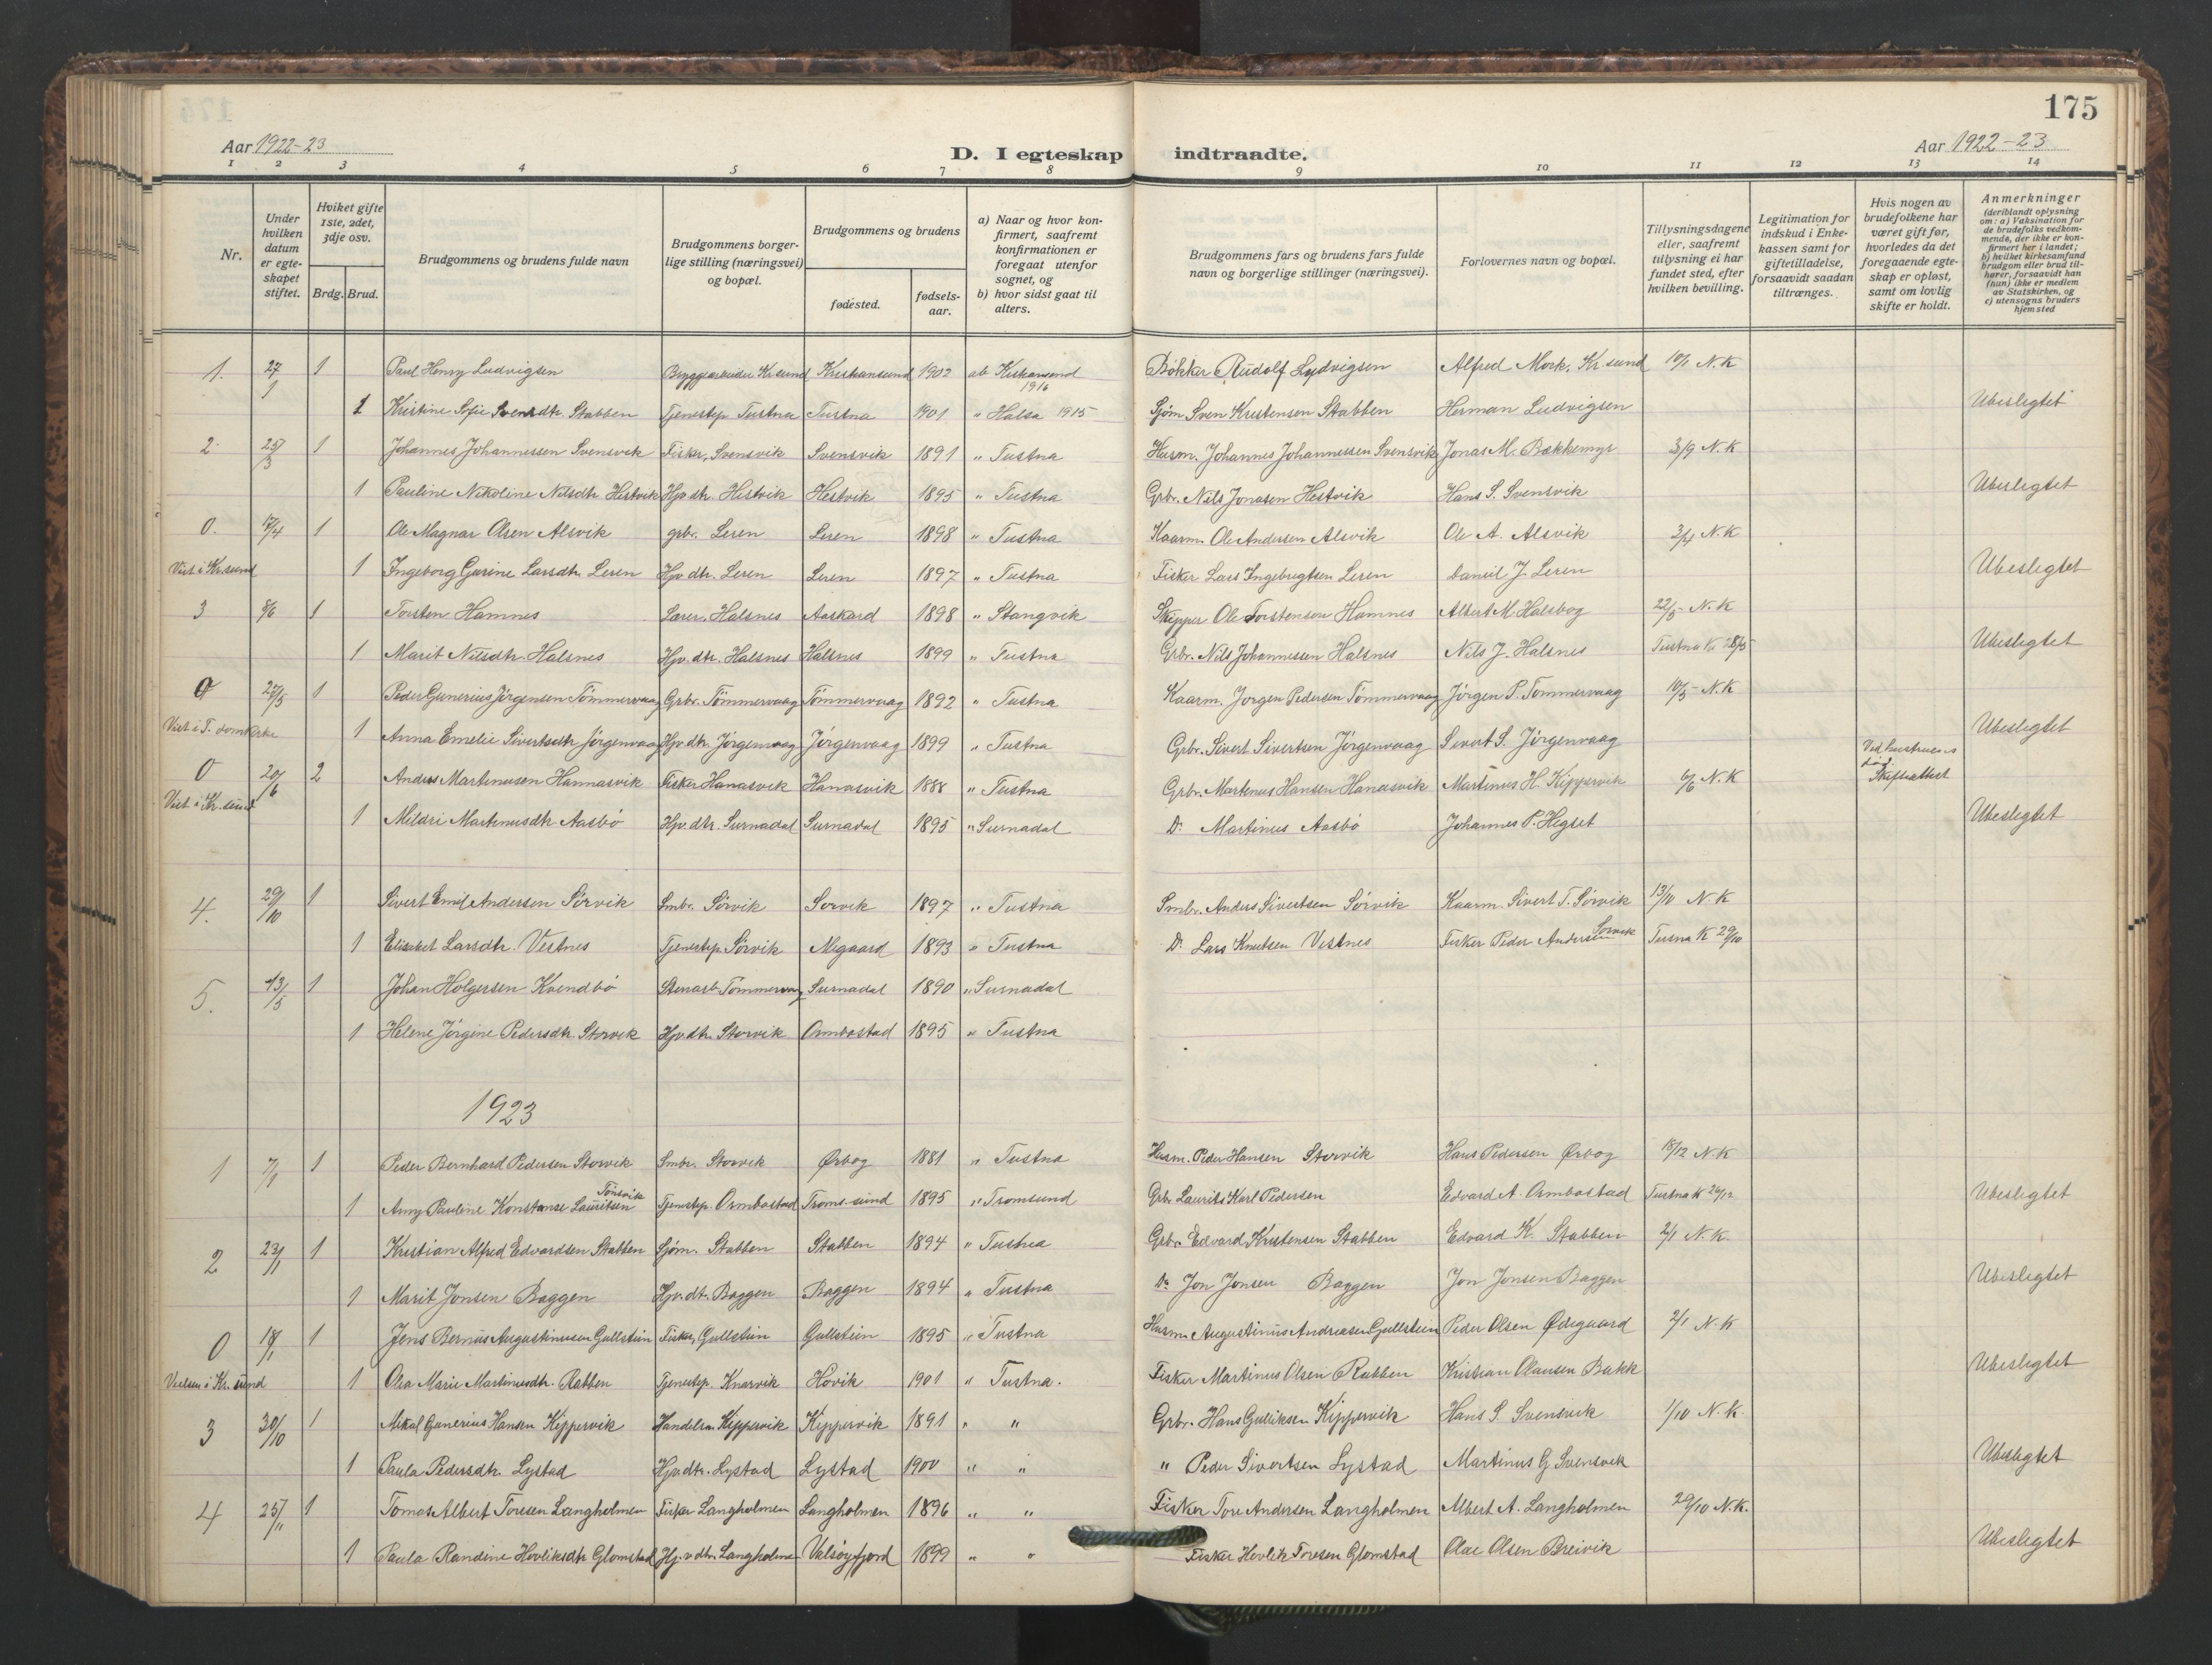 175
Aar 1922-23
D. I egteskap indtraadte.
Aar 1922-23
1 2 3 4 5 6 7 8 9 10 11 12 13 14
Nr.
Under hvilken datum er egteskapet stiftet.
Hvilket gifte 1ste, 2det, 3dje osv.
Brdg. Brud.
Brudgommens og brudens fulde navn
Brudgommens borgerlige stilling (næringsvei) og bopæl.
Brudgommens og brudens
fødested.
fødselsaar.
a) Naar og hvor konfirmert, saafremt konfirmationen er foregaat utenfor sognet, og
b) hvor sidst gaat til alters.
Brudgommens fars og brudens fars fulde navn og borgerlige stillinger (næringsvei).
Forlovernes navn og bopæl.
Tillysningsdagene eller, saafremt tillysning ei har fundet sted, efter hvilken bevilling.
Legitimation for indskud i Enkekassen samt for giftetilladelse, forsaavidt saadan tiltrænges.
Hvis nogen av brudefolkene har været gift før, hvorledes da det foregaaende egteskap er opløst, samt om lovlig skifte er holdt.
Anmerkninger
(deriblandt oplysning om: a) Vaksination for de brudefolks vedkommende, der ikke er konfirmert her i landet; b) hvilket kirkesamfund brudgom eller brud tilhører, forsaavidt han (hun) ikke er medlem av Statskirken, og c) utensogns bruders hjemsted
1. 27/1 1 Paul Henry Ludvigsen Bryggearbeider Kr.sund Kristiansund 1902 ab Kristiansund 1916 Bökker Rudolf Lydvigsen Alfred Mork, Kr sund 10/1 N.K
1 Kristine Sofie Svensdtr. Stabben Tjenestep. Tustna Tustna 1901 " Halsa 1915 Sjöm Sven Kristensen Stabben Herman Ludvigsen Ubeslegtet
2. 25/3 1 Johannes Johannessen Svensvik Fisker, Svensvik Svensvik 1891 " Tustna Husm. Johannes Johannessen Svensvik Jonas M. Bakkemyr 3/9 N.K
1 Pauline Nikoline Nilsdtr Hestvik Hjv. dtr. Hestvik Hestvik 1895 " Tustna Grbr. Nils Jonasen Hestvik Hans S. Svensvik Ubeslegtet
0. 17/4 1 Ole Magnar Olsen Alsvik grbr. Leren Leren 1898 " Tustna Kaarm. Ole Andersen Alsvik Ole A. Alsvik 3/4 N.K
Viet i Kr.sund 1 Ingeborg Gurine Larsdtr. Leren Hjv dtr. Leren Leren 1897 " Tustna Fisker Lars Ingebrigtsen Leren Daniel J. Leren Ubeslegtet
3 5/6 1 Torsten Hamnes Lærer, Halsnes Aaskard 1898 " Stangvik Skipper Ole Torstensen Hamnes Albert M. Halsbog 22/5 N.K
1 Marit Nilsdtr. Halsnes Hjv. dtr. Halsnes Halsnes 1899 " Tustna Grbr. Nils Johannessen Halsnes Nils J. Halsnes Tustna K 28/5 Ubeslegtet
0 27/5 1 Peder Gunerius Jörgensen Tömmervaag Grbr. Tömmervaag Tömmervaag 1892 " Tustna Kaarm. Jorgen Pedersen Tömmervaag Jörgen P. Tommervaag 10/5 N.K
Viet i T. domkirke 1 Anna Emelie Sivertsdtr Jörgenvaag Hjv dtr Jörgenvaag Jörgenvaag 1899 " Tustna Grbr. Sivert Sivertsen Jörgenvaag Sivert S. Jörgenvaag Ubeslegtet
0 20/6 2 Anders Martinusen Hannasvik Fisker Hanasvik Hanasvik 1888 " Tustna Grbr. Martinus Hansen Hanasvik Martinus H. Kippervik 6/6 N.K Ved hustruens död. Skifteattest
Viet i Kr.sund 1 Mildri Martinusdtr Aasbö Hjv. dtr. Surnadal Surnadal 1895 " Surnadal Do Martinus Aasbö Johannes P. Hegset Ubeslegtet
4. 29/10 1 Sivert Emil Andersen Sörvik Smbr. Sörvik Sorvik 1897 " Tustna Smbr. Anders Sivertsen Sörvik Kaarm. Sivert T. Sörvik 13/10 N.K
1 Elisabet Larsdtr. Vestnes Tjenestep. Sörvik Negaard 1893 " Tustna Do Lars Knutsen Vestnes Fisker Peder Andersen Sorvik Tusna K 29/10
5. 13/5 1 Johan Holgersen Kvendbö Stenarb. Tommervaag Surnadal 1890 " Surnadal
1 Helene Jörgine Pedersdtr. Storvik Hjv. dtr Storvik Ormbostad 1895 " Tustna
1923
1 7/1 1 Peder Bernhard Pedersen Storvik Smbr. Storvik Ørbog 1881 " Tustna Husm. Peder Hansen Storvik Hans Pedersen Ørbog 18/12 N.K
1 Anny Pauline Konstanse Lauritsen Tönsvik Tjenestep. Ormbostad Troms.sund 1895 " Tromsund Grbr. Laurits Karl Pedersen Edvard A. Ormbostad Tustna K 26/12 Ubeslegtet
2 23/1 1 Kristian Alfred Edvardsen Stabben Sjöm. Stabben Stabben 1894 " Tustna Grbr. Edvard Kristensen Stabben Edvard K. Stabben 2/1 N.K.
1 Marit Jonsen Baggen Hjv. dtr. Baggen Baggen 1894 " Tustna Do Jon Jonsen Baggen Jon Jonsen Baggen Ubeslegtet
0 18/1 1 Jens Bernus Augustinusen Gullstein Fisker, Gullstein Gullstein 1895 " Tustna Husm. Augustinus Andreasen Gullstein Peder Olsen Ødegaard 2/1 N.K
Vielsen i Kr.sund 1 Olea Marie Martinusdtr. Rabben Tjenestep. Knarvik Hövik 1901 " Tustna. Fisker Martinus Olsen Rabben Kristian Olausen Bakk Ubeslegtet
3 30/10 1 Mikal Gunerius Hansen Kippervik Handelsm Kippervik Kippervik 1891 " " Grbr. Hans Gulliksen Kippervik Hans S. Svensvik 1/10 N.K.
1 Paula Pedersdtr. Lystad Hjv. dtr. Lystad Lystad 1900 " " " Peder Sivertsen Lystad Martinus G Svensvik Ubeslegtet
4 25/11 1 Tomas Albert Toresen Langholmen Fisker Langholmen Langholmen 1896 " " Fisker Tore Andersen Langholmen Albert A. Langholmen 29/10 N.K.
1 Paula Randine Hovliksdtr Glomstad Hj.v dtr. Langholmen Valsöyfjord 1899 " " Fisker Hovlik Toresen Glomstad Olae Olsen Breivik Ubeslegtet